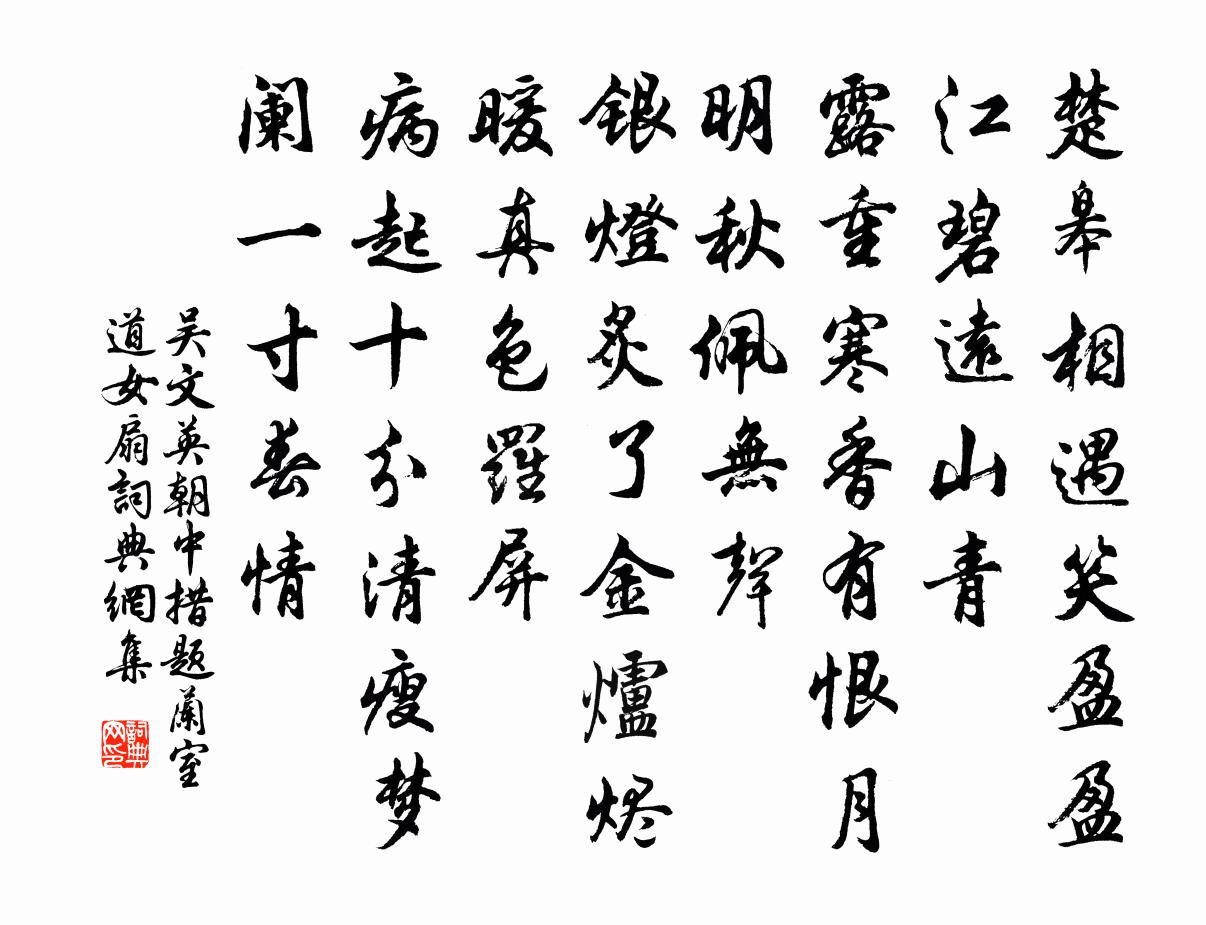 楚皋相遇笑盈盈
江碧遠山青
露重寒香有恨月
明秋佩無聲
銀燈炙了金爐烬
暖真色羅屏
病起十分清瘦梦
阑一寸春情
吴文英朝中措题蘭室
道女扇詞典網集
詞典
网印